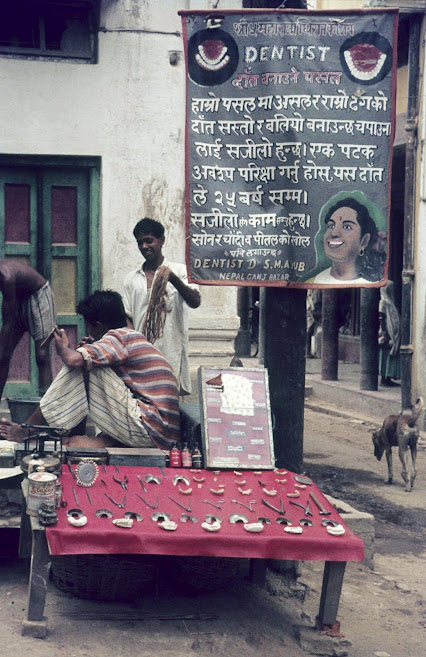 DENTIST
दाँत बनाउने पसल
हाम्रो पसल मा असल र राम्रो ढंगको
दाँत सस्तो र बलियो बनाउन्छ चपाउन
लाई सजीलो हुन्छ। एक पटक
अवश्य परिक्षा गर्नु होस् यस दाँत
ले २५ बर्ष सम्म।
सजीलो काम हुन्छ।
सोन र चाँदी व पीतल को खोल
पनि लगाइन्छ
DENTIST D. S.M.AYUB
NEPAL GANJ BAZAR